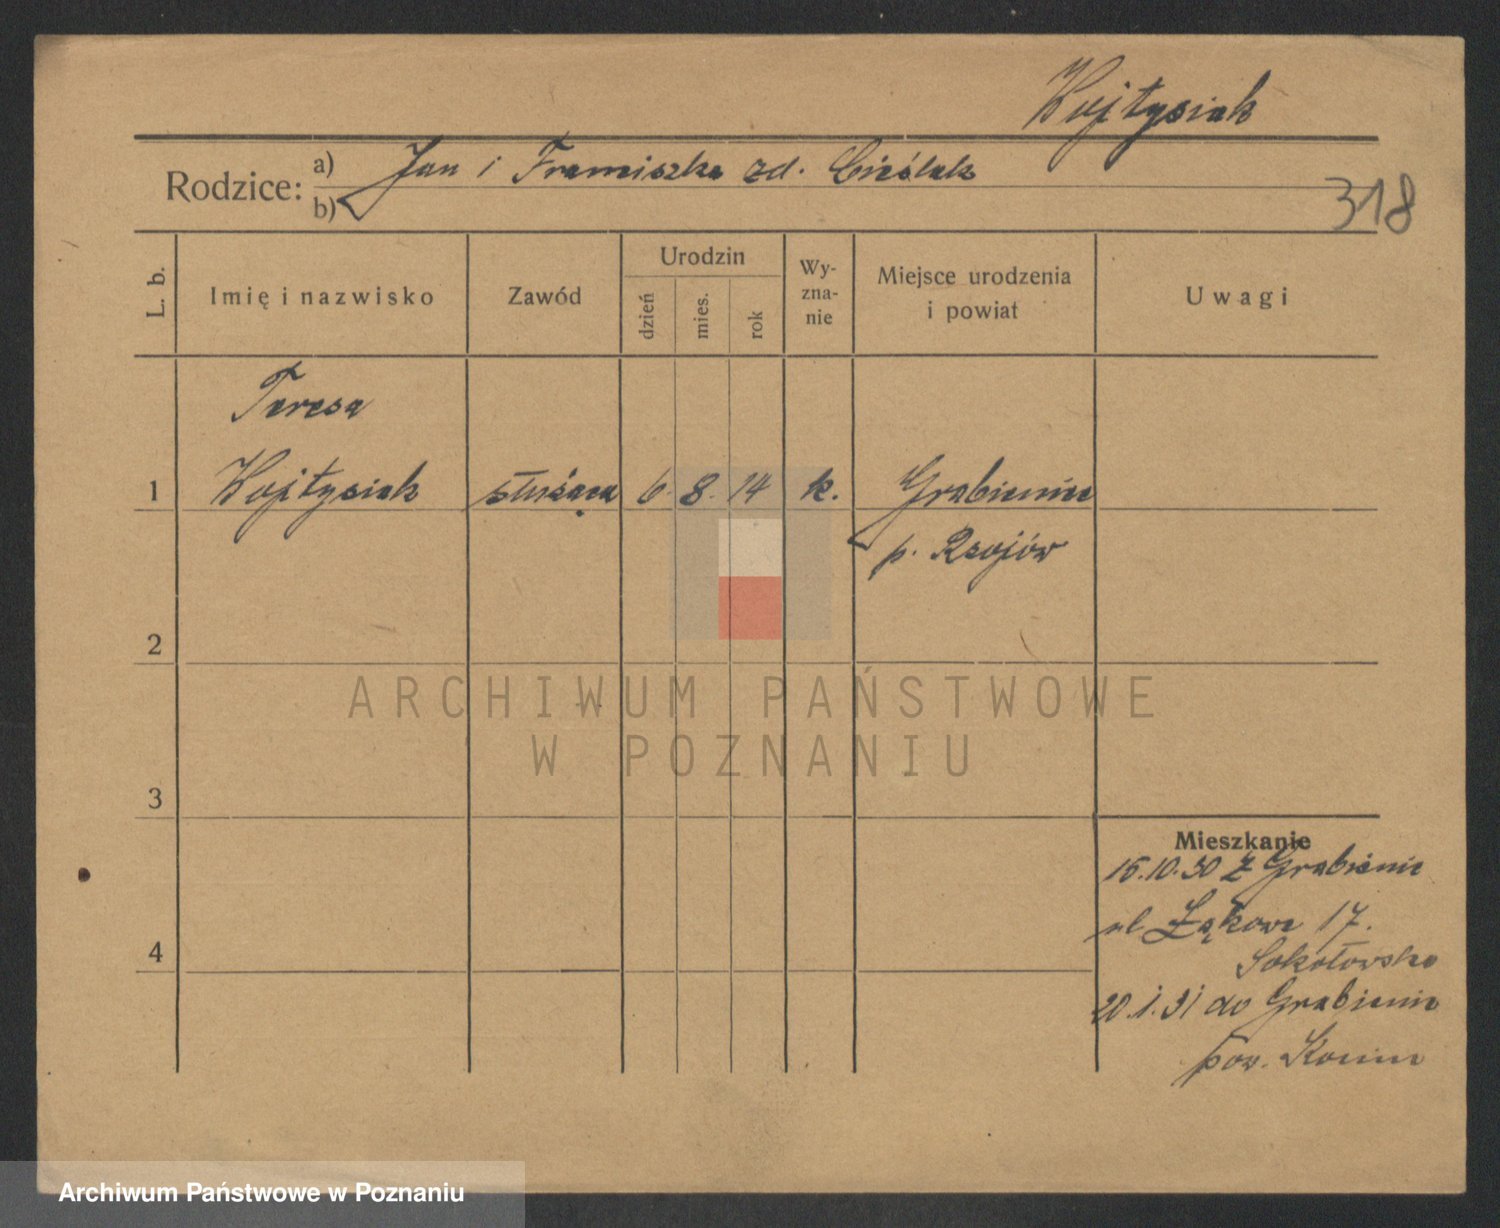 Wojtysiak
Rodzice: a) Jan i Franciszka zd. Cieślak
b)
318
L. b. Imię i nazwisko Zawód Urodzin dzień mies. rok Wy-zna-nie Miejsce urodzenia i powiat Uwagi
Teresa
1 Wojtysiak służąca 6. 8. 14 k. Grabienice
p. Rzojów
2
ARCHIWUM PAŃSTWOWE
W POZNANIU
3
Mieszkanie
15.10.30 z Grabienic
ul Łąkowa 17.
4
Sokołowska
20.1.31 do Grabienic
pow. Konin
Archiwum Państwowe w Poznaniu